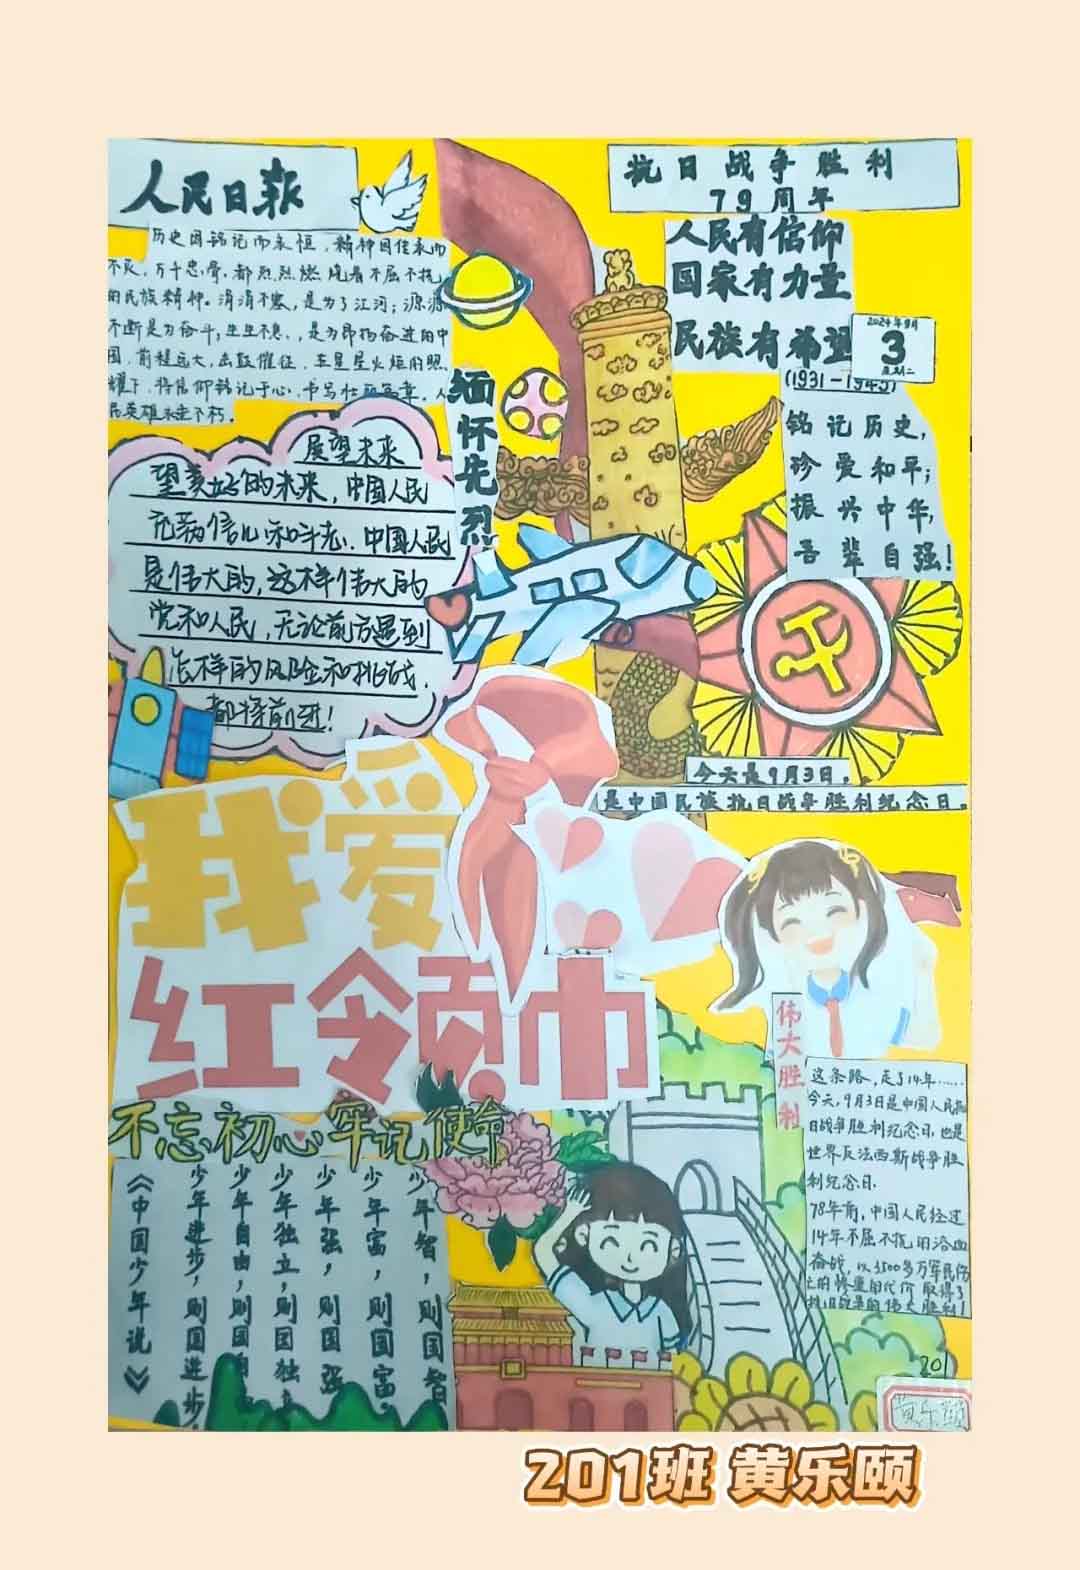 人民日报
历史因铭记而永恒，精神因传承而
不灭，万千忠骨，都烈烈燃烧着不屈不挠
的民族精神。涓涓不塞，是为了江河；源源
不断是为奋斗；生生不息，是为昂扬奋进的中
国，前程远大，击鼓催征，在星星火炬的照
耀下，将信仰铭记于心，书写壮丽篇章。人
民英雄永垂不朽。
抗日战争胜利
79周年
人民有信仰
国家有力量
民族有希望
2024年9月
3
星期二
(1931-1945)
铭记历史，
珍爱和平；
振兴中华，
吾辈自强！
缅怀先烈
展望未来
望美好的未来，中国人民
充满信心和斗志。中国人民
是伟大的，这样伟大的
党和人民，无论前方遇到
怎样的风险和挑战，
都将前进！
今天是9月3日，
是中国民族抗日战争胜利纪念日。
我爱
红领巾
伟大胜利
这条路，走了14年……
今天，9月3日是中国人民抗
日战争胜利纪念日，也是
世界反法西斯战争胜
利纪念日。
78年前，中国人民经过
14年不屈不挠的浴血
奋战，以3500多万军民伤
亡的惨重的代价取得了
的伟大胜利！
不忘初心牢记使命
少年智，则国智
少年富，则国富。
少年强，则国强
少年独立，则国独
少年自由，则国
少年进步，则国进步，
《中国少年说》
201
黄乐颐
201班 黄乐颐